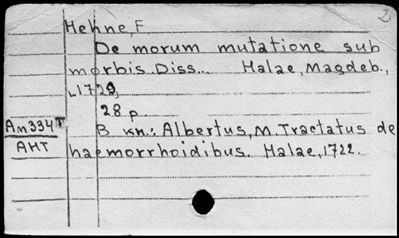 2
Hehne, F.
De morum mutatione sub
morbis. Diss... Halae, Magdeb.,
1729,
28 p.
Ан334т В кн.: Albertus, M. Tractatus de
АНТ haemorrhoidibus. Halae, 1722.